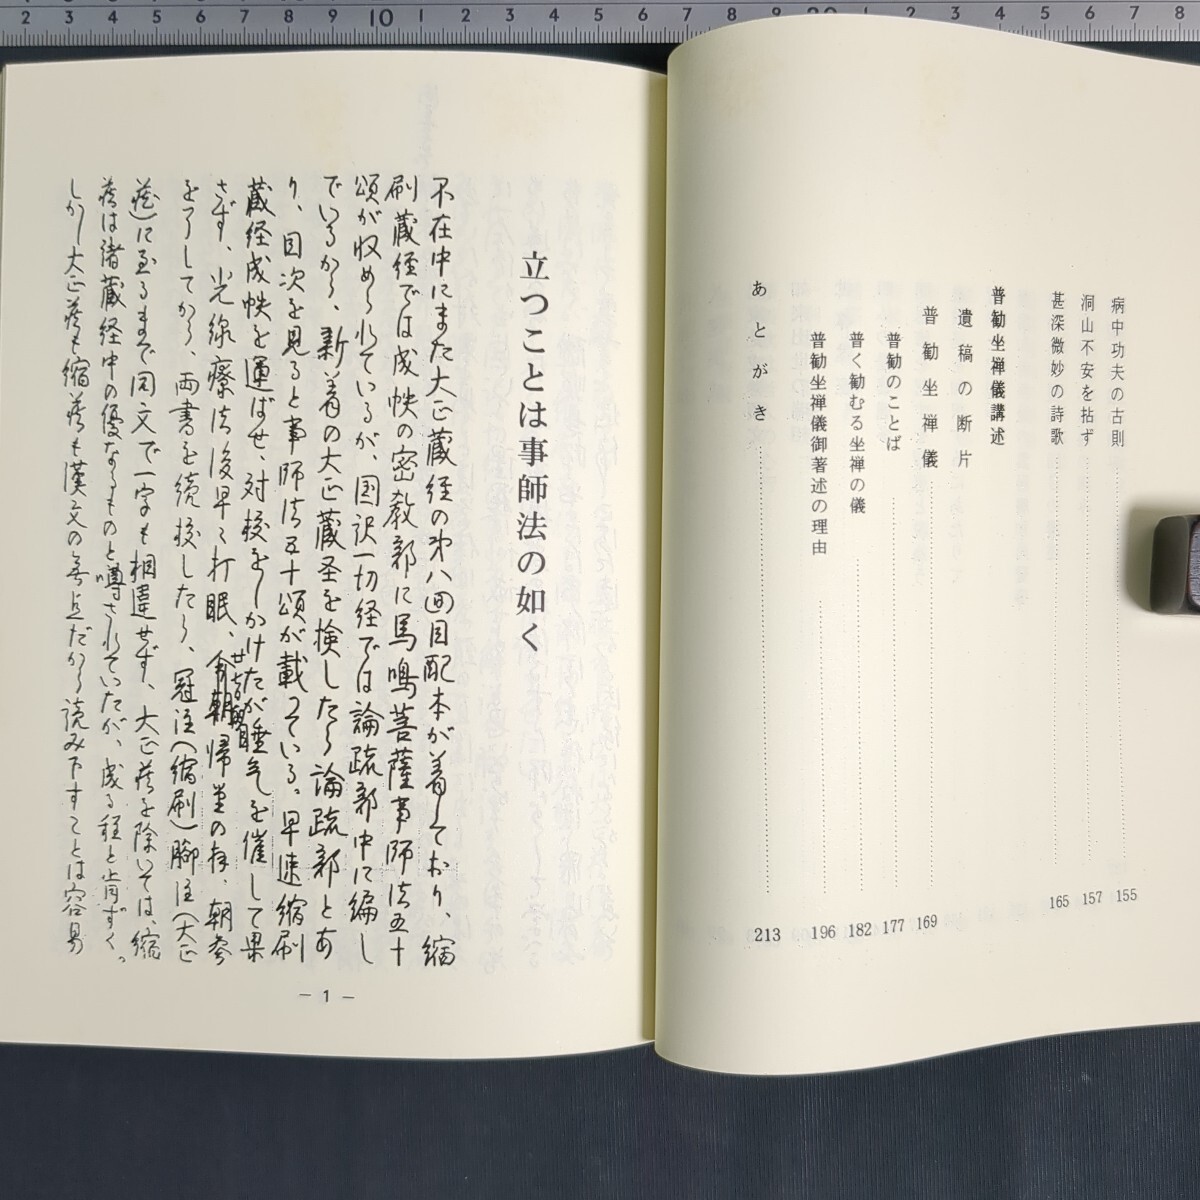 病中功夫の古則 155
洞山不安を拈ず 157
甚深微妙の詩歌 165
普勧坐禅儀講述
遺稿の断片
普勧坐禅儀 169
普勧のことば 177
普く勧むる坐禅の儀 182
普勧坐禅儀御著述の理由 196
あとがき 213
立つことは事師法の如く
不在中にまた大正蔵経の第八回目配本が着しており、縮
刷蔵経では成帙の密教部に馬鳴菩薩事師法五十
頌が収められているが、国訳一切経では論疏部中に編し
ているから、新着の大正蔵圣を検したら論疏部とあ
り、目次を見ると事師法五十頌が載っている。早速縮刷
蔵経成帙を運ばせ、対校をしかけたが睡気を催して果
さず、光線療法後早く打眠、今朝帰堂の様、朝参
を了してから、両書を続校したら、冠注(縮刷)脚注(大正
蔵)に至るまで同文で一字も相違せず、大正蔵を除いては、縮
蔵は諸蔵経中の優なるものと噂されていたが、成る程と肯ずく。
しかし大正蔵も縮蔵も漢文の無点だから読み下すことは容易
— 1 —